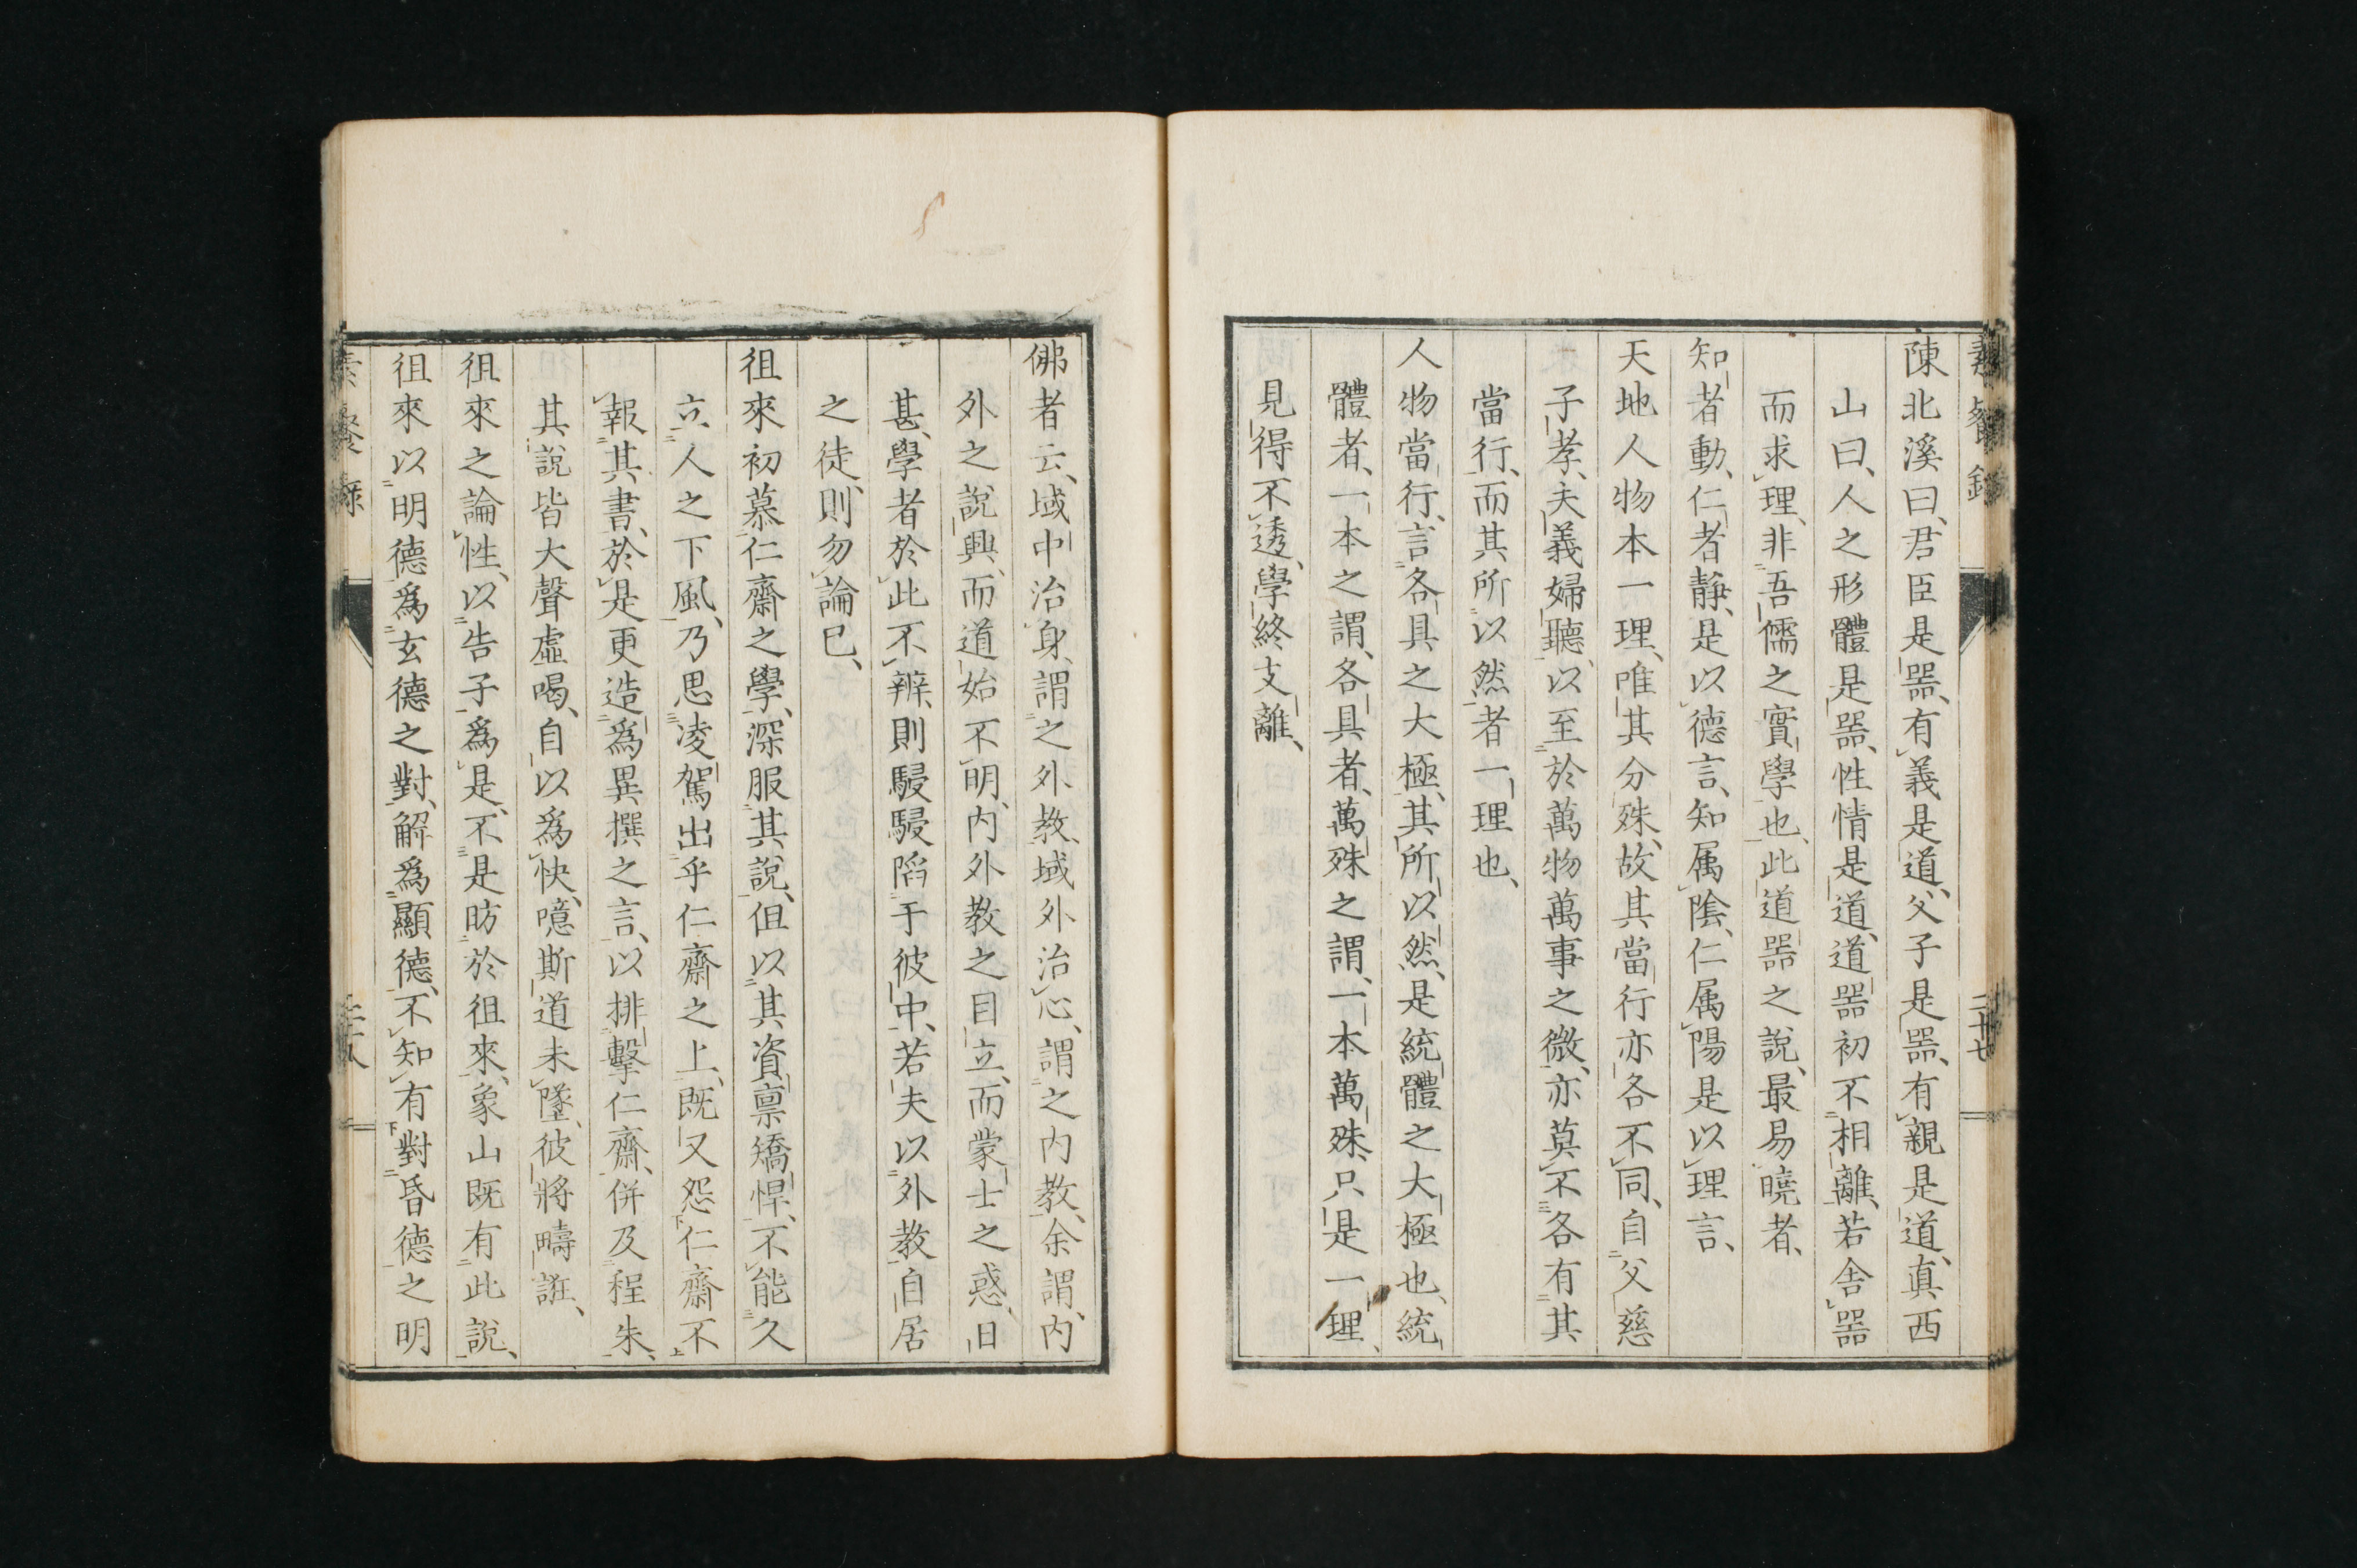 陳北溪曰、君臣是器、有義是道、父子是器、有親是道、真西
山曰、人之形體是器、性情是道、道器初不相離、若舎器
而求理、非吾儒之實學也、此道器之說、最易曉者、
知者動、仁者静、是以德言、知属陰、仁属陽、是以理言、
天地人物本一理、唯其分殊、故其當行亦各不同、自父慈
子孝、夫義婦聽、以至於萬物萬事之微、亦莫不各有其
當行、而其所以然者一理也、
人物當行、言各具之大極、其所以然、是統體之大極也、統
體者、一本之謂、各具者、萬殊之謂、一本萬殊、只是一理、
見得不透、學終支離、
佛者云、域中治身、謂之外教、域外治心、謂之内教、余謂、内
外之說興、而道始不明、内外教之目立、而蒙士之惑、日
甚、學者於此不辨、則駸駸陷于彼中、若夫以外教自居
之徒、則勿論已、
徂來初慕仁齋之學、深服其說、但以其資稟矯悍、不能久
立人之下風、乃思凌駕出乎仁齋之上、既又怨仁齋不
報其書、於是更造為異撰之言、以排擊仁齋、併及程朱、
其說皆大聲虛喝、自以為快、噫斯道未墜、彼將疇誑、
徂來之論性、以告子為是、不是昉於徂來、象山既有此說、
徂來以明德為玄德之對、解為顯德、不知有對昏德之明
素餐錄